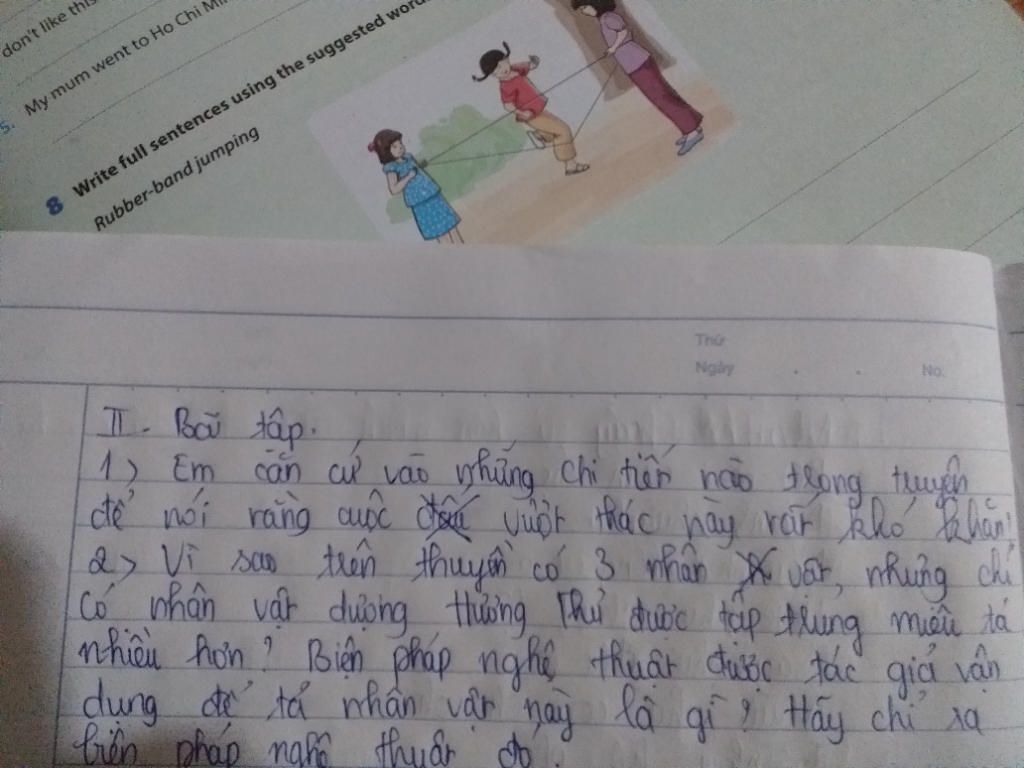 don't like this
5. My mum went to Ho Chi Mi
8 Write full sentences using the suggested word
Rubber-band jumping
Thứ
Ngày . . No.
II. Bài tập.
1) Em căn cứ vào những chi tiết nào trong truyện
để nói rằng cuộc vượt thác này rất khó khăn?
2) Vì sao trên thuyền có 3 nhân vật, nhưng chỉ
có nhân vật dượng Hương Thư được tập trung miêu tả
nhiều hơn? Biện pháp nghệ thuật được tác giả vận
dụng để tả nhân vật này là gì? Hãy chỉ ra
biện pháp nghệ thuật đó.